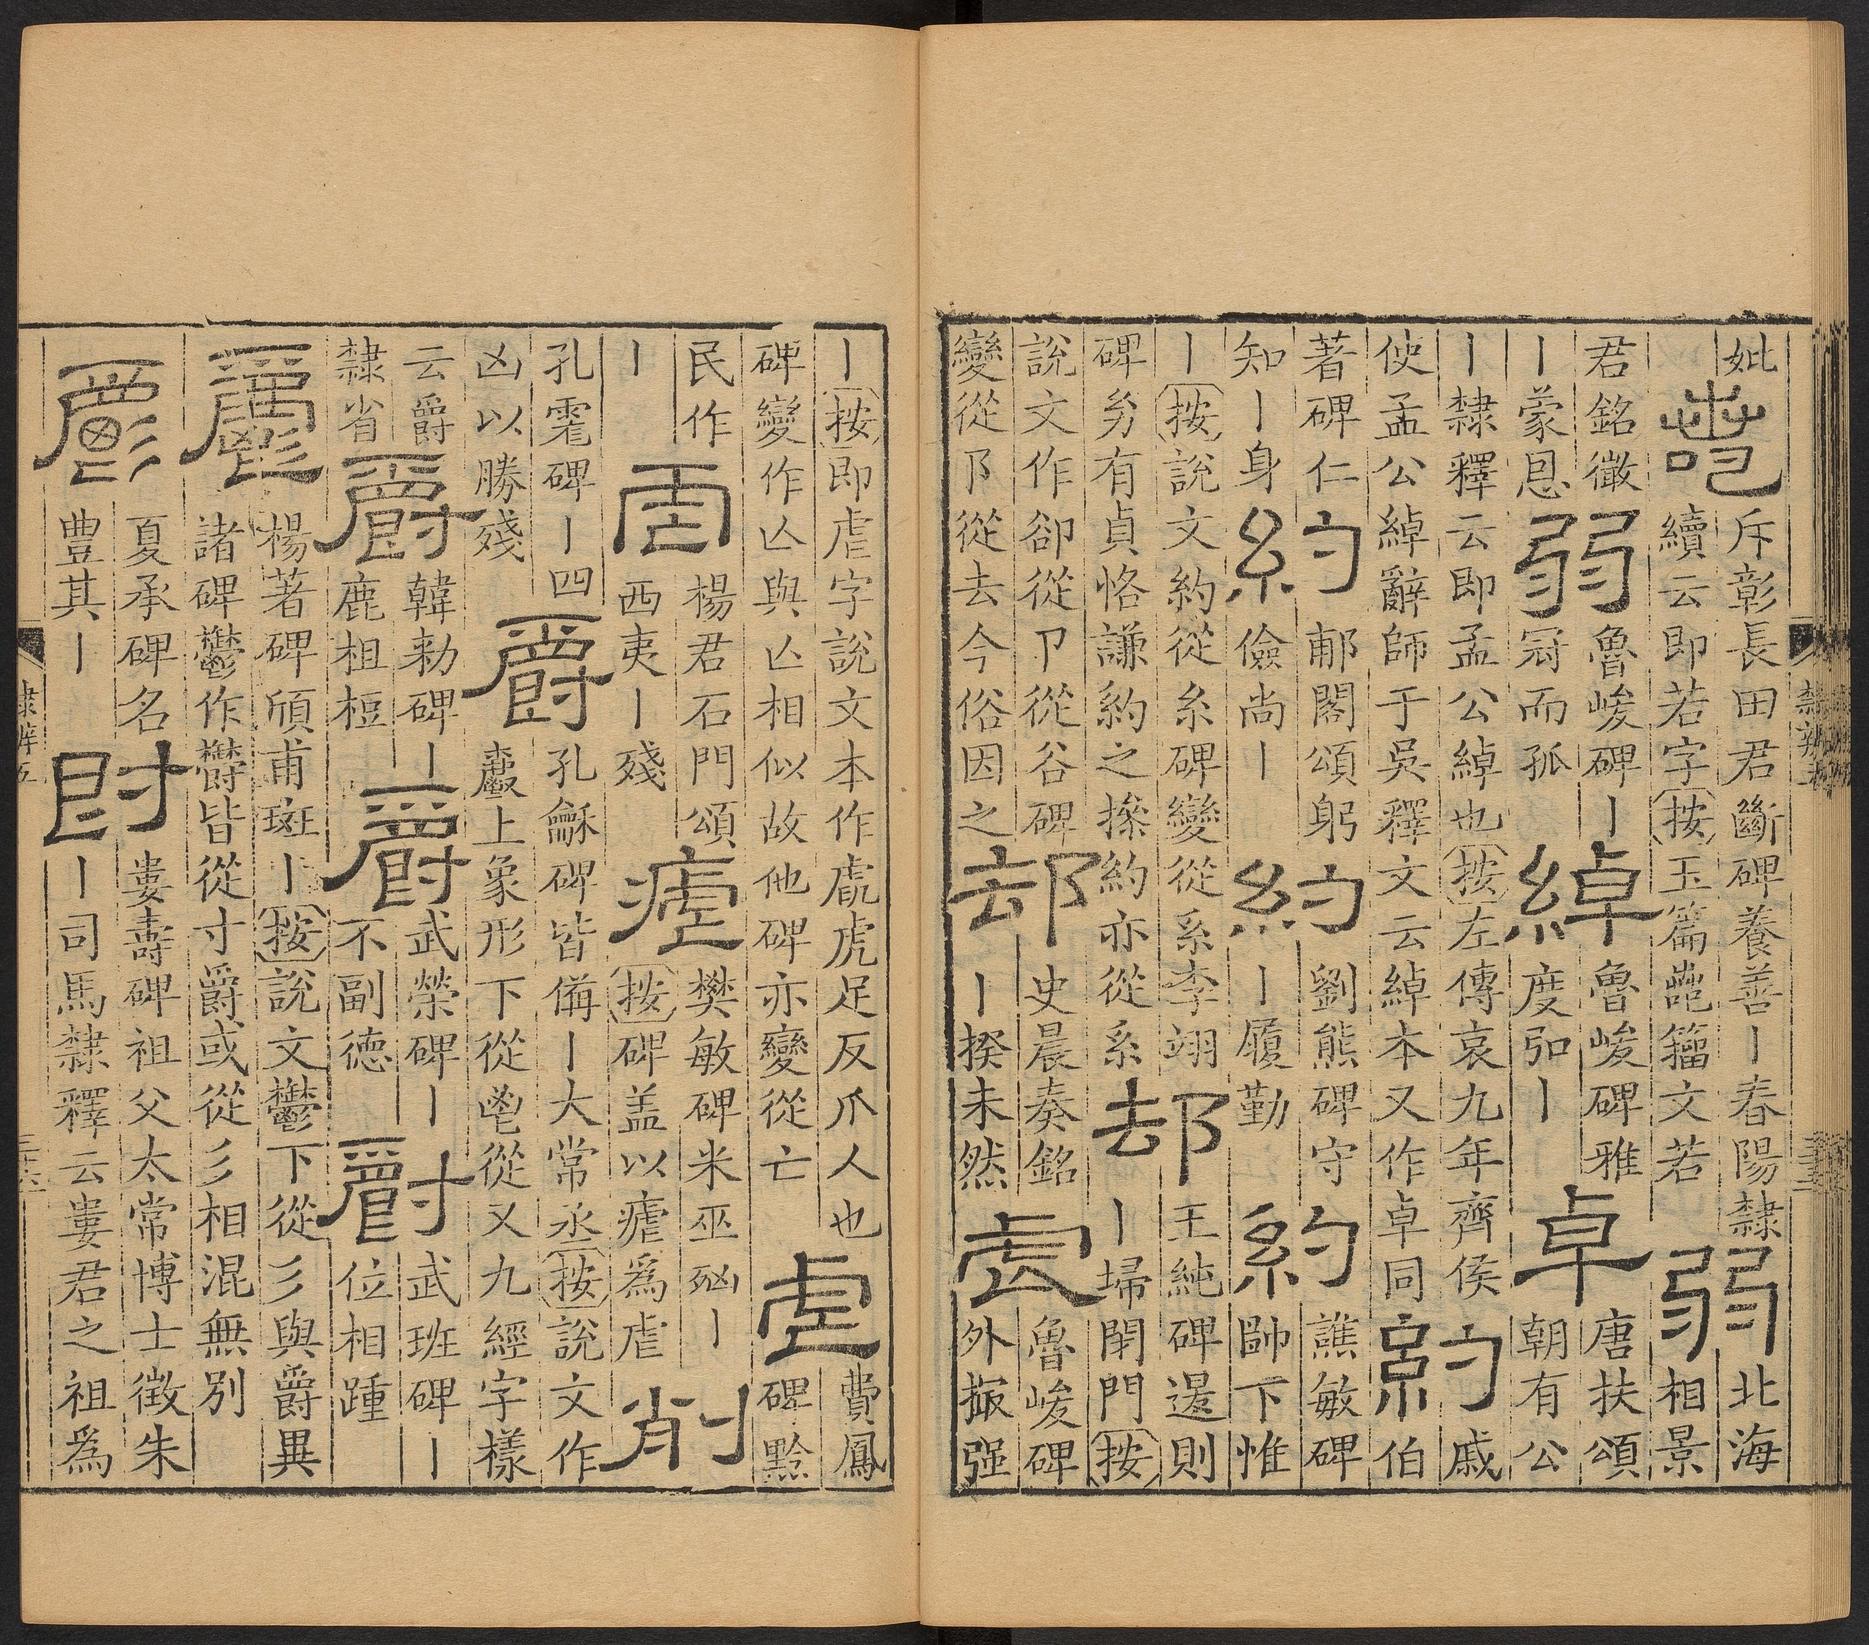 妣
斥彰長田君斷碑養善丨春陽隸
續云即若字按玉篇籀文若
弱
北海
相景
君銘徵
丨蒙恩
弱
魯峻碑丨
冠而孤
綽
魯峻碑雅
度弘丨
卓
唐扶頌
朝有公
丨隸釋云即孟公綽也按左傳哀九年齊侯
使孟公綽辭師于吳釋文云綽本又作卓同
約
戚
伯
著碑仁
知丨身
約
郙閣頌躬
儉尚丨
約
劉熊碑守
丨履勤
約
譙敏碑
帥下惟
丨按說文約從糸碑變從系李翊
碑劣有貞恪謙約之搡約亦從系
却
王純碑還則
丨埽閉門按
說文作卻從卩從谷碑
變從阝從去今俗因之
却
史晨奏銘
丨揆未然
虐
魯峻碑
外强
丨按即虐字說文本作虐虎足反爪人也
碑變作亾與亾相似故他碑亦變從亡
虐
費鳳
碑黔
民作
丨
虐
楊君石門頌
西夷丨殘
瘧
樊敏碑米巫丨
按碑盖以瘧爲虐
削
孔碑丨四
凶以勝殘
爵
孔龢碑皆備丨大常丞按說文作
上象形下從鬯從又九經字樣
云爵
隸省
爵
韓勑碑丨
鹿柤梪
爵
武榮碑丨
不副德
爵
武班碑丨
位相踵
鬱
楊著碑頎甫班丨按說文鬱下從彡與爵異
諸碑鬱作欝皆從寸爵或從彡相混無別
爵
夏承碑名
豊其丨
爵
婁壽碑祖父太常博士徵朱
丨司馬隸釋云婁君之祖爲
隸辨五